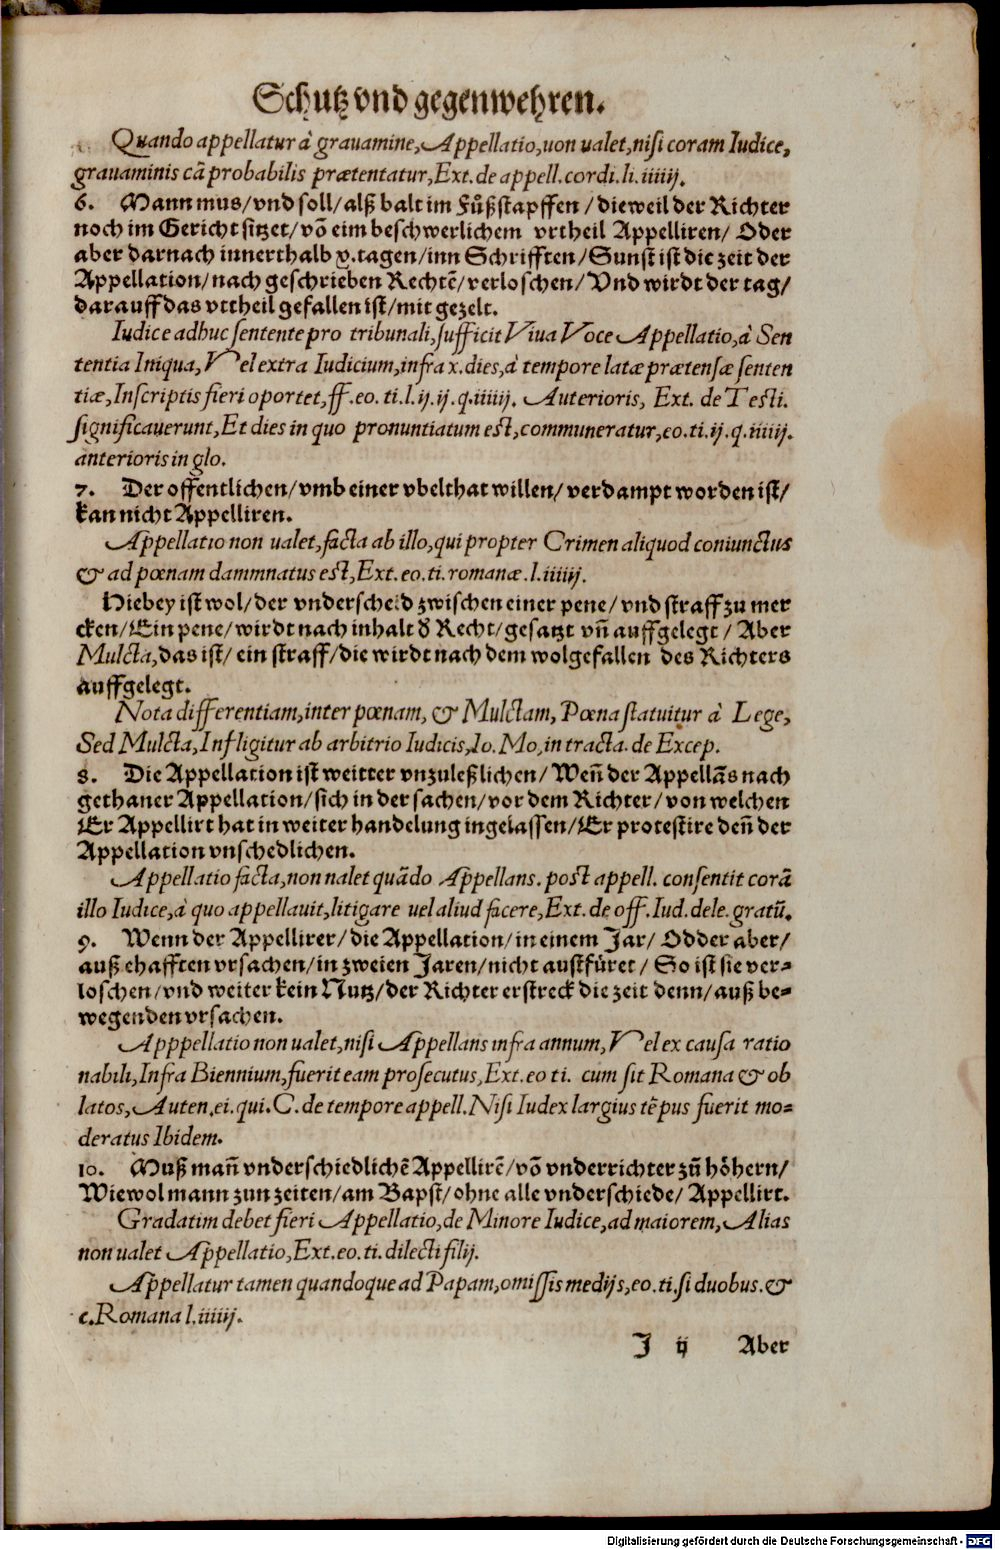 Schutz vnd gegenwehren.
Quando appellatur à grauamine, Appellatio, uon ualet, nisi coram Iudice,
grauaminis cā probabilis prætentatur, Ext. de appell. cordi. li. iiiiij.
6. Mann mus / vnd soll / alß balt im Fůßstapffen / dieweil der Richter
noch im Gericht sitzet / võ eim beschwerlichem vrtheil Appelliren / Oder
aber darnach innerthalb x. tagen / inn Schrifften / Sunst ist die zeit der
Appellation / nach geschrieben Rechtē / verloschen / Vnd wirdt der tag /
darauff das vrtheil gefallen ist / mit gezelt.
Iudice adhuc sentente pro tribunali, sufficit Viua Voce Appellatio, à Sen
tentia Iniqua, Vel extra Iudicium, infra x. dies, à tempore latæ prætensæ senten
tiæ, Inscriptis fieri oportet, ff. eo. ti. l. ij. ij. q. iiiiij. Auterioris, Ext. de Testi.
significauerunt, Et dies in quo pronuntiatum est, communeratur, eo. ti. ij. q. iiiiij.
anterioris in glo.
7. Der offentlichen / vmb einer vbelthat willen / verdampt worden ist /
kan nicht Appelliren.
Appellatio non ualet, facta ab illo, qui propter Crimen aliquod coniunctus
& ad pœnam dammnatus est, Ext. eo. ti. romanæ. l. iiiiij.
Hiebey ist wol / der vnderscheid zwischen einer pene / vnd straff zu mer
cken / Ein pene / wirdt nach inhalt d' Recht / gesatzt vñ auffgelegt / Aber
Mulcta, das ist / ein straff / die wirdt nach dem wolgefallen des Richters
auffgelegt.
Nota differentiam, inter pœnam, & Mulctam, Pœna statuitur à Lege,
Sed Mulcta, Infligitur ab arbitrio Iudicis, Io. Mo, in tracta. de Excep.
8. Die Appellation ist weitter vnzuleßlichen / Weñ der Appellās nach
gethaner Appellation / sich in der sachen / vor dem Richter / von welchen
Er Appellirt hat in weiter handelung ingelassen / Er protestire deñ der
Appellation vnschedlichen.
Appellatio facta, non nalet quādo Appellans. post appell. consentit corā
illo Iudice, à quo appellauit, litigare uel aliud facere, Ext. de off. Iud. dele. gratū.
9. Wenn der Appellirer / die Appellation / in einem Jar / Odder aber /
auß ehafften vrsachen / in zweien Jaren / nicht austfüret / So ist sie ver=
loschen / vnd weiter kein Nutz / der Richter erstreck die zeit denn / auß be=
wegenden vrsachen.
Apppellatio non ualet, nisi Appellans infra annum, Vel ex causa ratio
nabili, Infra Biennium, fuerit eam prosecutus, Ext. eo ti. cum sit Romana & ob
latos, Auten. ei. qui. C. de tempore appell. Nisi Iudex largius tēpus fuerit mo=
deratus Ibidem.
10. Muß mañ vnderschiedlichē Appellirē / võ vnderrichter zũ hôhern /
Wiewol mann zun zeiten / am Bapst / ohne alle vnderschiede / Appellirt.
Gradatim debet fieri Appellatio, de Minore Iudice, ad maiorem, Alias
non ualet Appellatio, Ext. eo. ti. dilecti filij.
Appellatur tamen quandoque ad Papam, omissis medijs, eo. ti. si duobus. &
c. Romana l. iiiiij.
J ij Aber
Digitalisierung gefördert durch die Deutsche Forschungsgemeinschaft - DFG